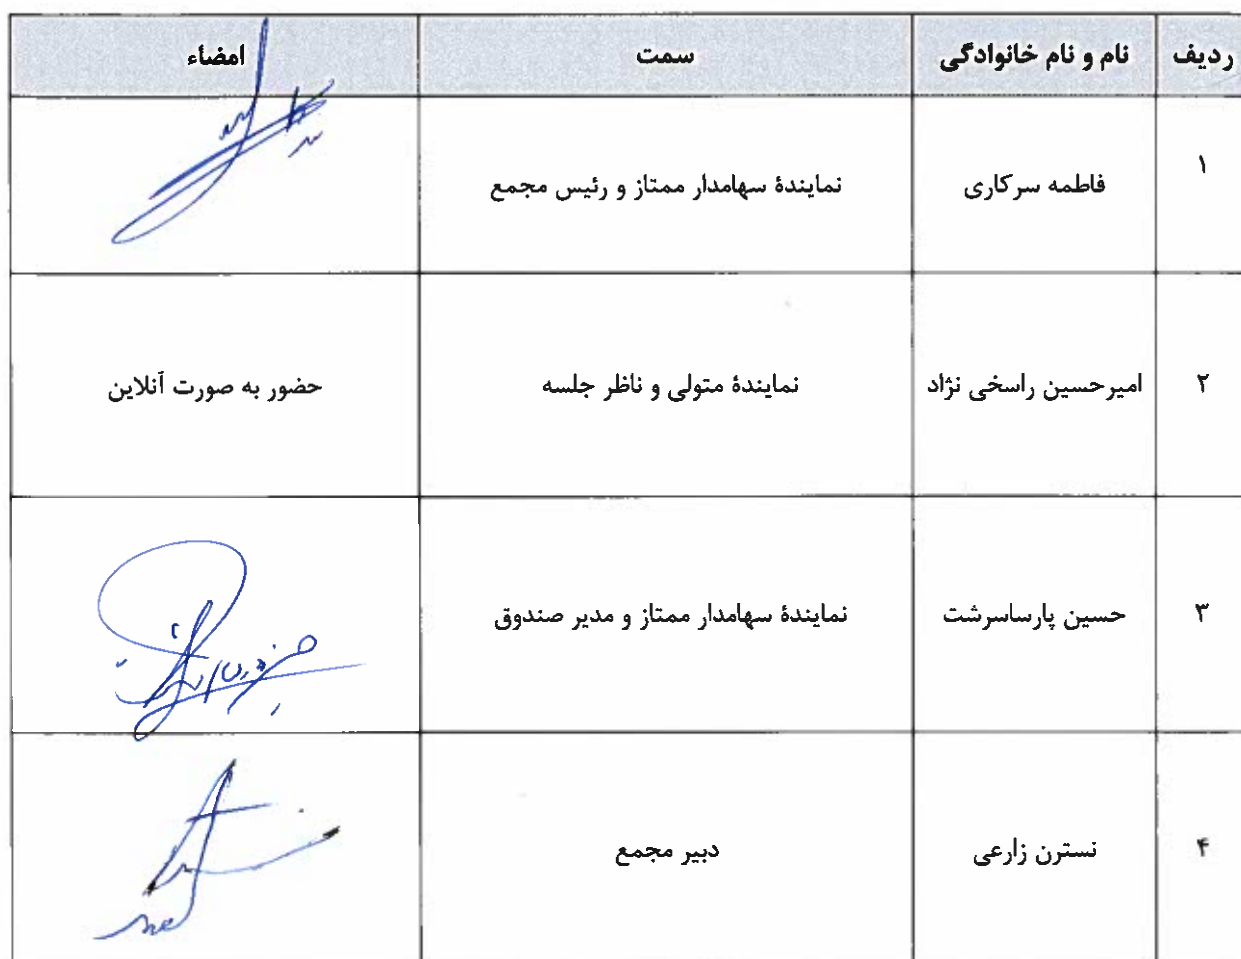 ردیف نام و نام خانوادگی سمت امضاء
۱ فاطمه سرکاری نمایندهٔ سهامدار ممتاز و رئیس مجمع
۲ امیرحسین راسخی نژاد نمایندهٔ متولی و ناظر جلسه حضور به صورت آنلاین
۳ حسین پارساسرشت نمایندهٔ سهامدار ممتاز و مدیر صندوق
۴ نسترن زارعی دبیر مجمع